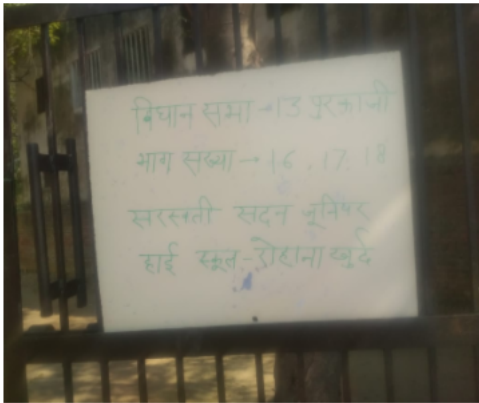 विधान सभा - 13 पुरकाजी
भाग संख्या → 16, 17, 18
सरस्वती सदन जूनियर
हाई स्कूल - रोहाना खुर्द